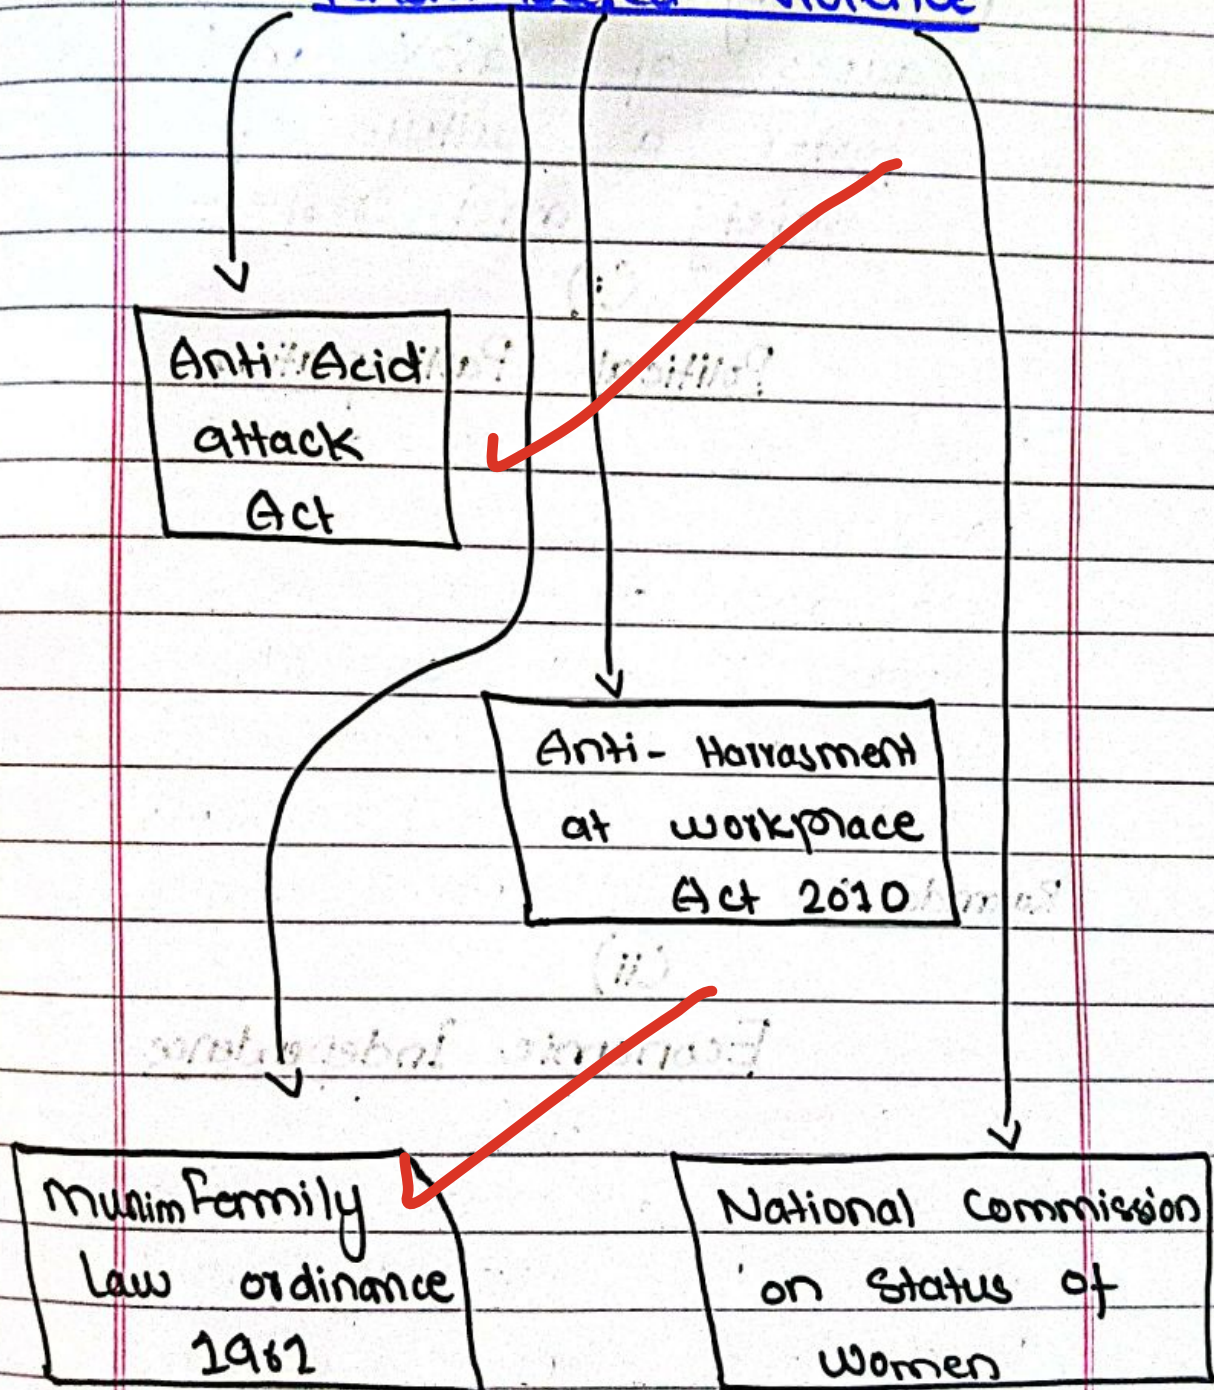 violence
Anti Acid
attack
Act
Anti- Harrasment
at workplace
Act 2010
Muslim Family
law ordinance
1961
National Commission
on status of
women